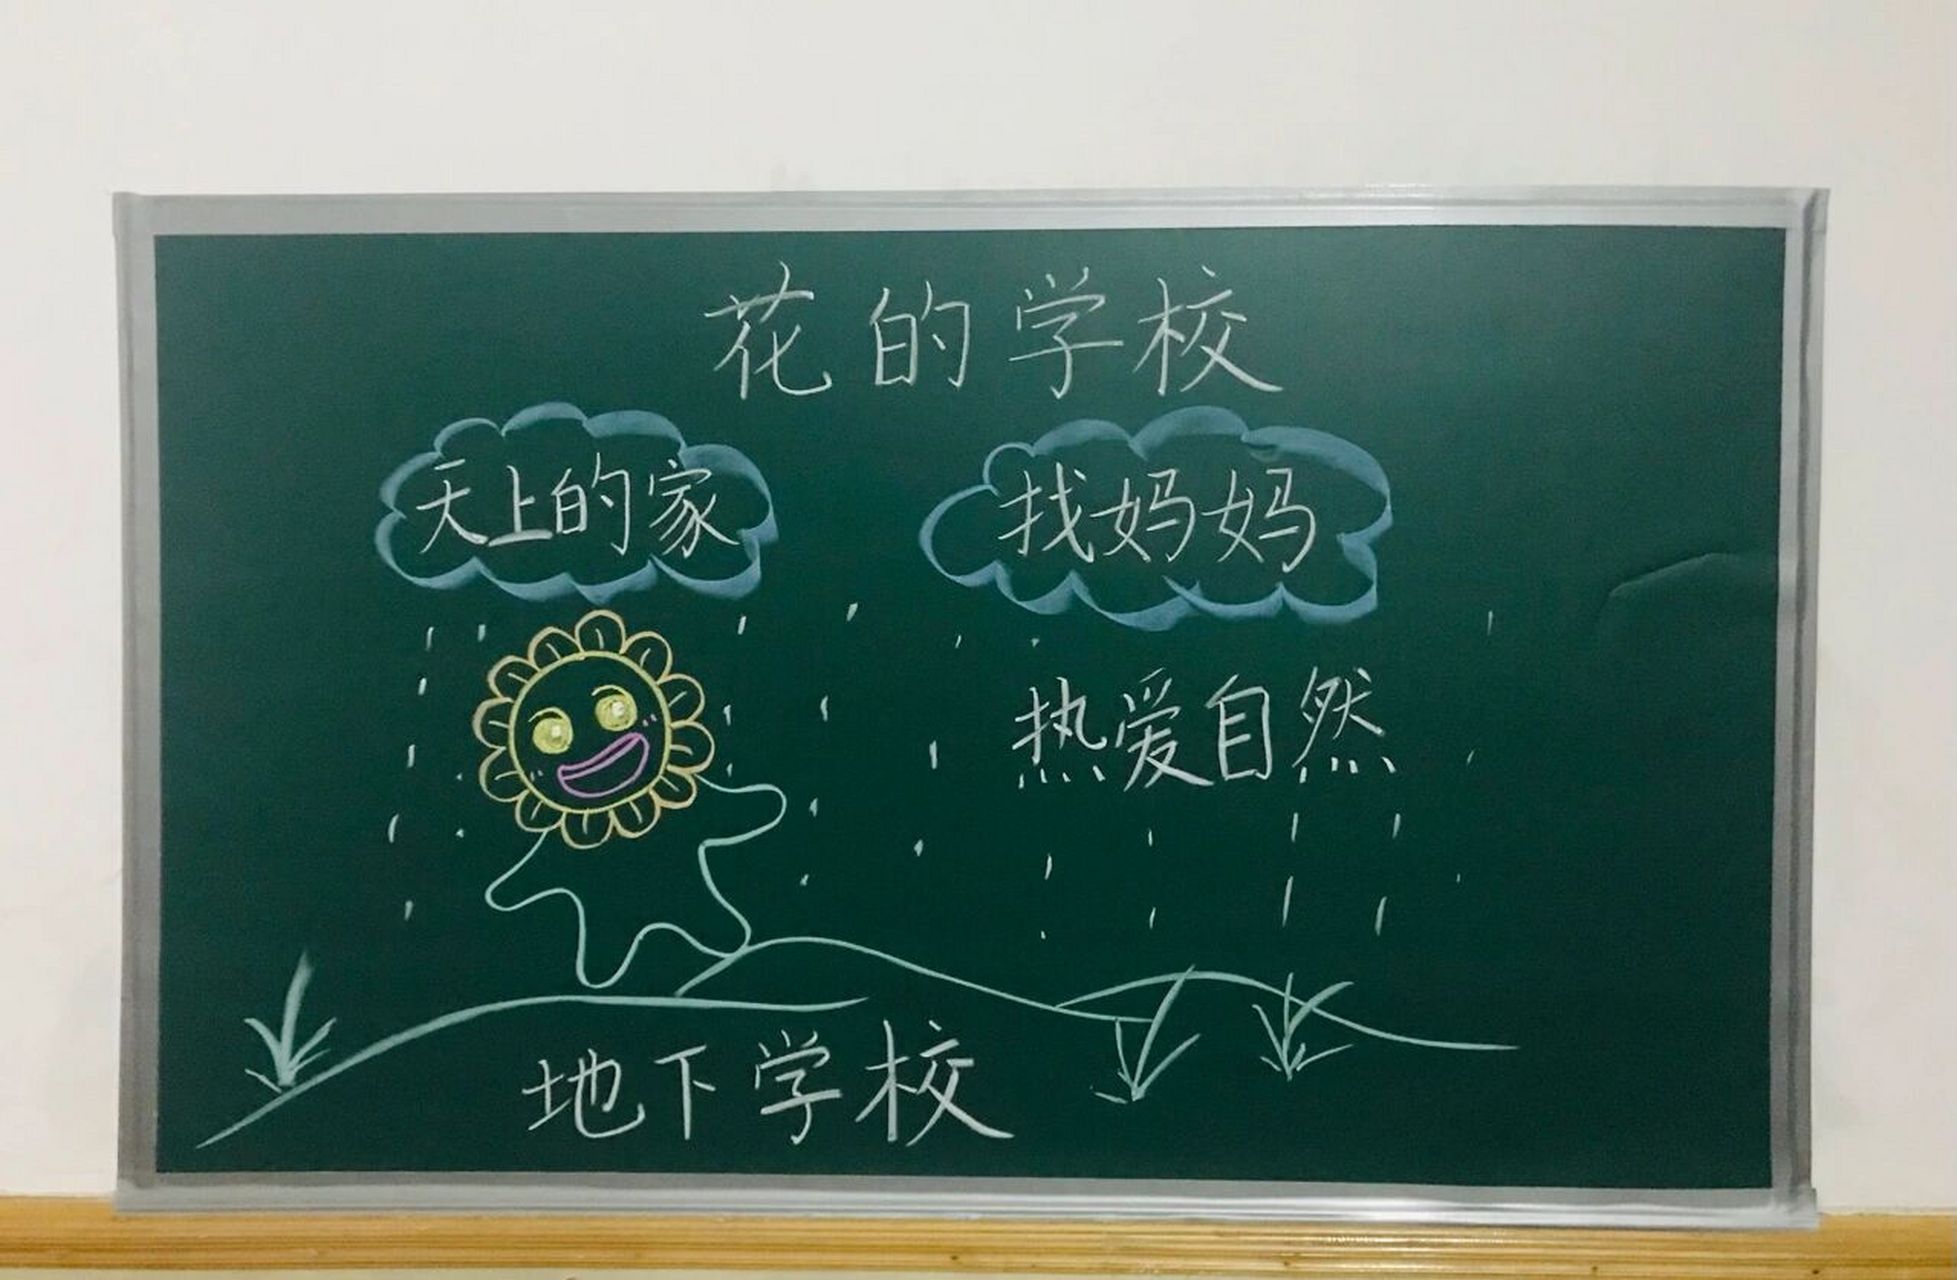 花的学校
天上的家
找妈妈
热爱自然
地下学校